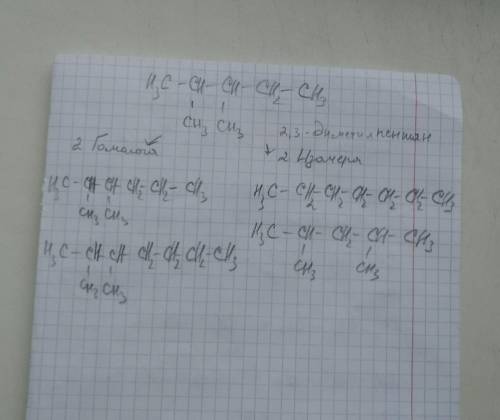 H₃C – CH – CH – CH₂ – CH₃
CH₃ CH₃
2,3-диметилпентан
2 Гомолога
2 Изомера
H₃C – CH – CH – CH₂ – CH₂ – CH₃
CH₃ CH₃
H₃C – CH – CH CH₂ – CH₂ – CH₂ – CH₃
CH₂ CH₃
H₃C – CH₂ – CH₂ – CH₂ – CH₂ – CH₂ – CH₃
H₃C – CH – CH₂ – CH – CH₃
CH₃ CH₃